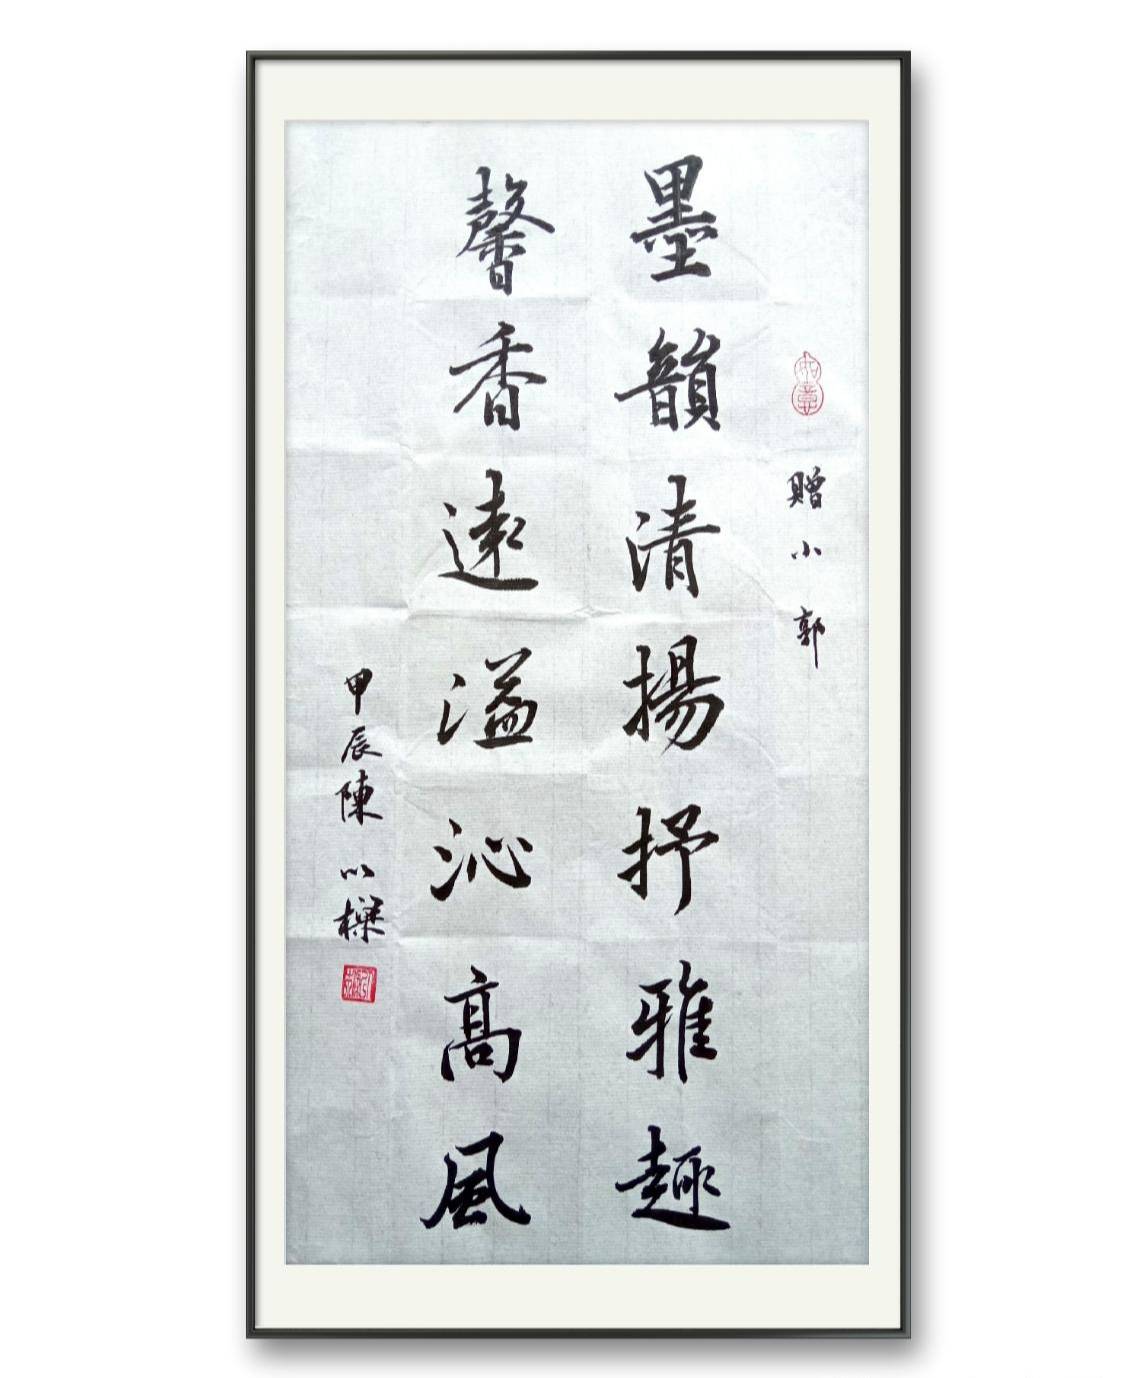 如意
贈小郭
墨韻清揚抒雅趣
馨香遠溢沁高風
甲辰陳以櫸